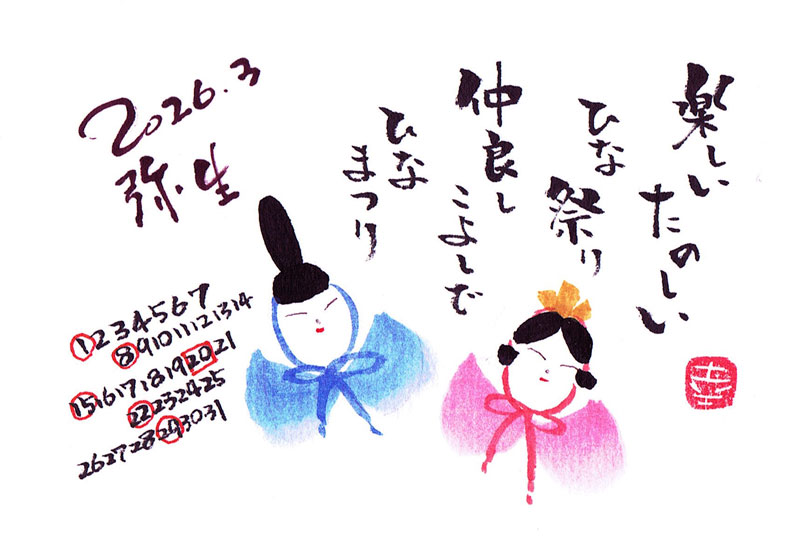 楽しい
たのしい
ひな
祭り
仲良し
こよしで
ひな
まつり
2026.3
弥生
1 2 3 4 5 6 7
8 9 10 11 12 13 14
15 16 17 18 19 20 21
22 23 24 25
26 27 28 29 30 31